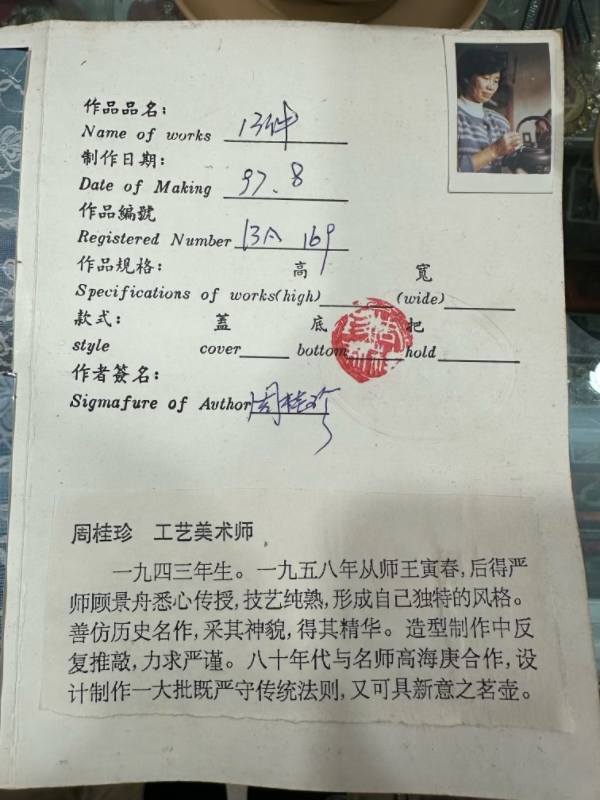 作品品名:
Name of works 13件
制作日期:
Date of Making 97.8
作品編號
Registered Number 13A 169
作品规格: 高 寬
Specifications of works(high) (wide)
款式: 蓋 底 把
style cover bottom hold
作者簽名:
Sigmafure of Avthor 周桂珍
周桂珍 工艺美术师
一九四三年生。一九五八年从师王寅春,后得严
师顾景舟悉心传授,技艺纯熟,形成自己独特的风格。
善仿历史名作,采其神貌,得其精华。造型制作中反
复推敲,力求严谨。八十年代与名师高海庚合作,设
计制作一大批既严守传统法则,又可具新意之茗壶。